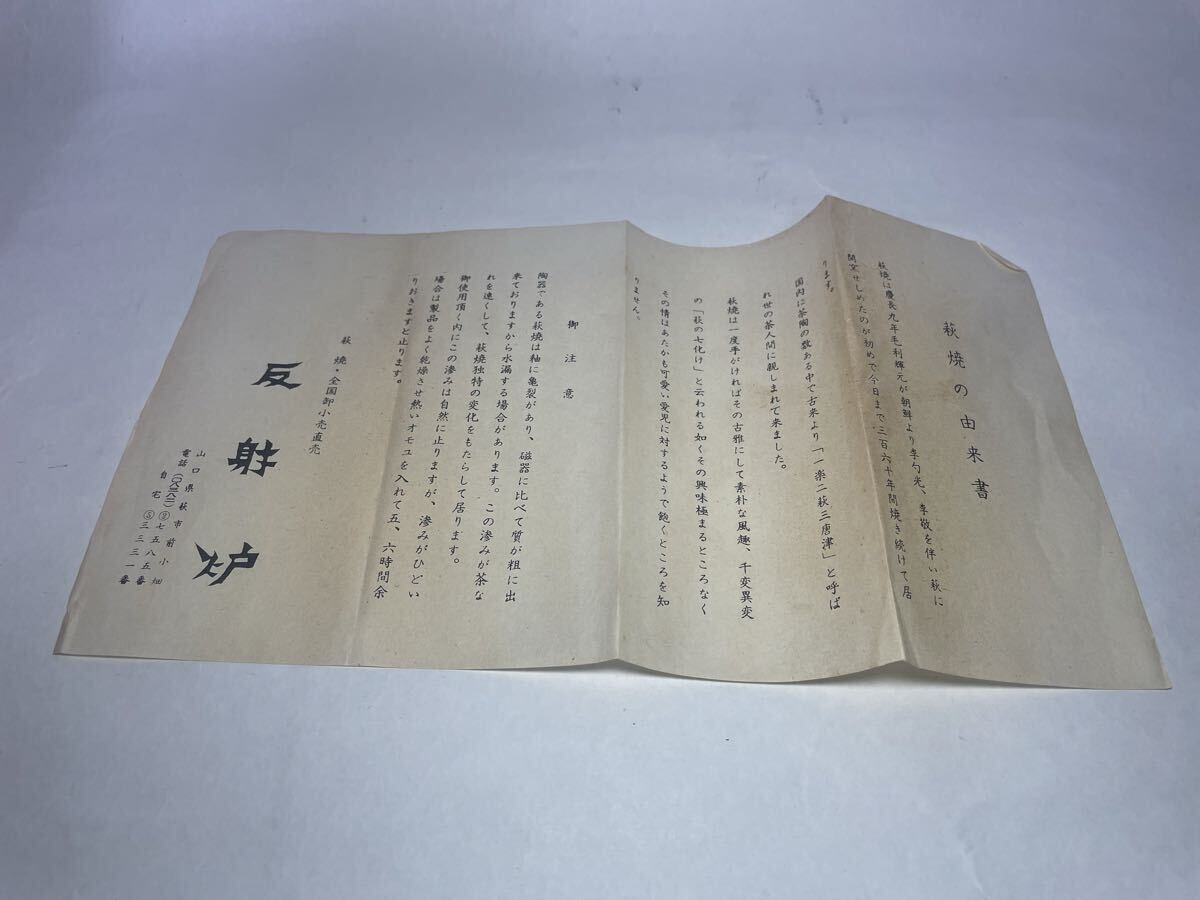 萩焼の由来書
萩焼は慶長九年毛利輝元が朝鮮より李勺光、李敬を伴い萩に
開窯せしめたのが初めで今日まで三百六十年間焼き続けて居
ります。
国内に茶陶の数ある中で古来より「一楽二萩三唐津」と呼ば
れ世の茶人間に親しまれて来ました。
萩焼は一度手がければその古雅にして素朴な風趣、千変異変
の「萩の七化け」と云われる如くその興味極まるところなく
その情はあたかも可愛い愛児に対するようで飽くところを知
りません。
御注意
陶器である萩焼は釉に亀裂があり、磁器に比べて質が粗に出
来ておりますから水漏する場合があります。この滲みが茶な
れを速くして、萩焼独特の変化をもたらして居ります。
御使用頂く内にこの滲みは自然に止りますが、滲みがひどい
場合は製品をよく乾燥させ熱いオモユを入れて五、六時間余
りおきますと止ります。
萩焼・全国卸小売直売
反射炉
山口県萩市前小畑
電話(〇八三八二)②七五八五番
自宅⑤三三三一番